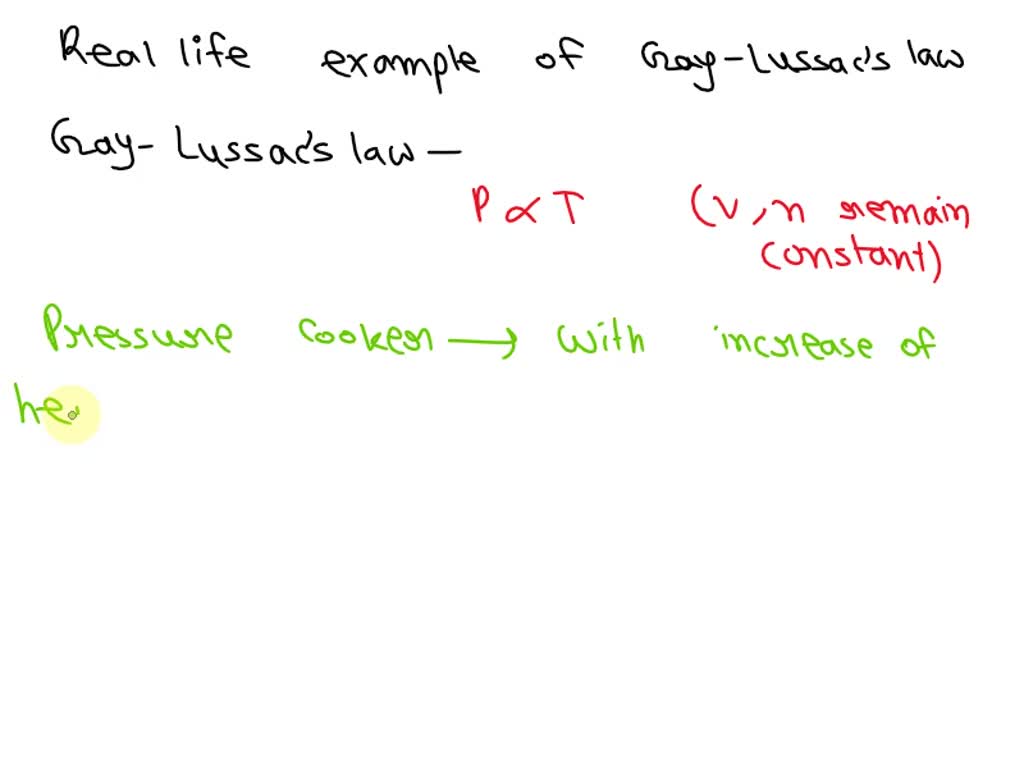 Real life example of Gray-Lussac's law
Gray-Lussac's law —
P ∝ T (v, n remain
constant)
Pressure cooker → with increase of
hea